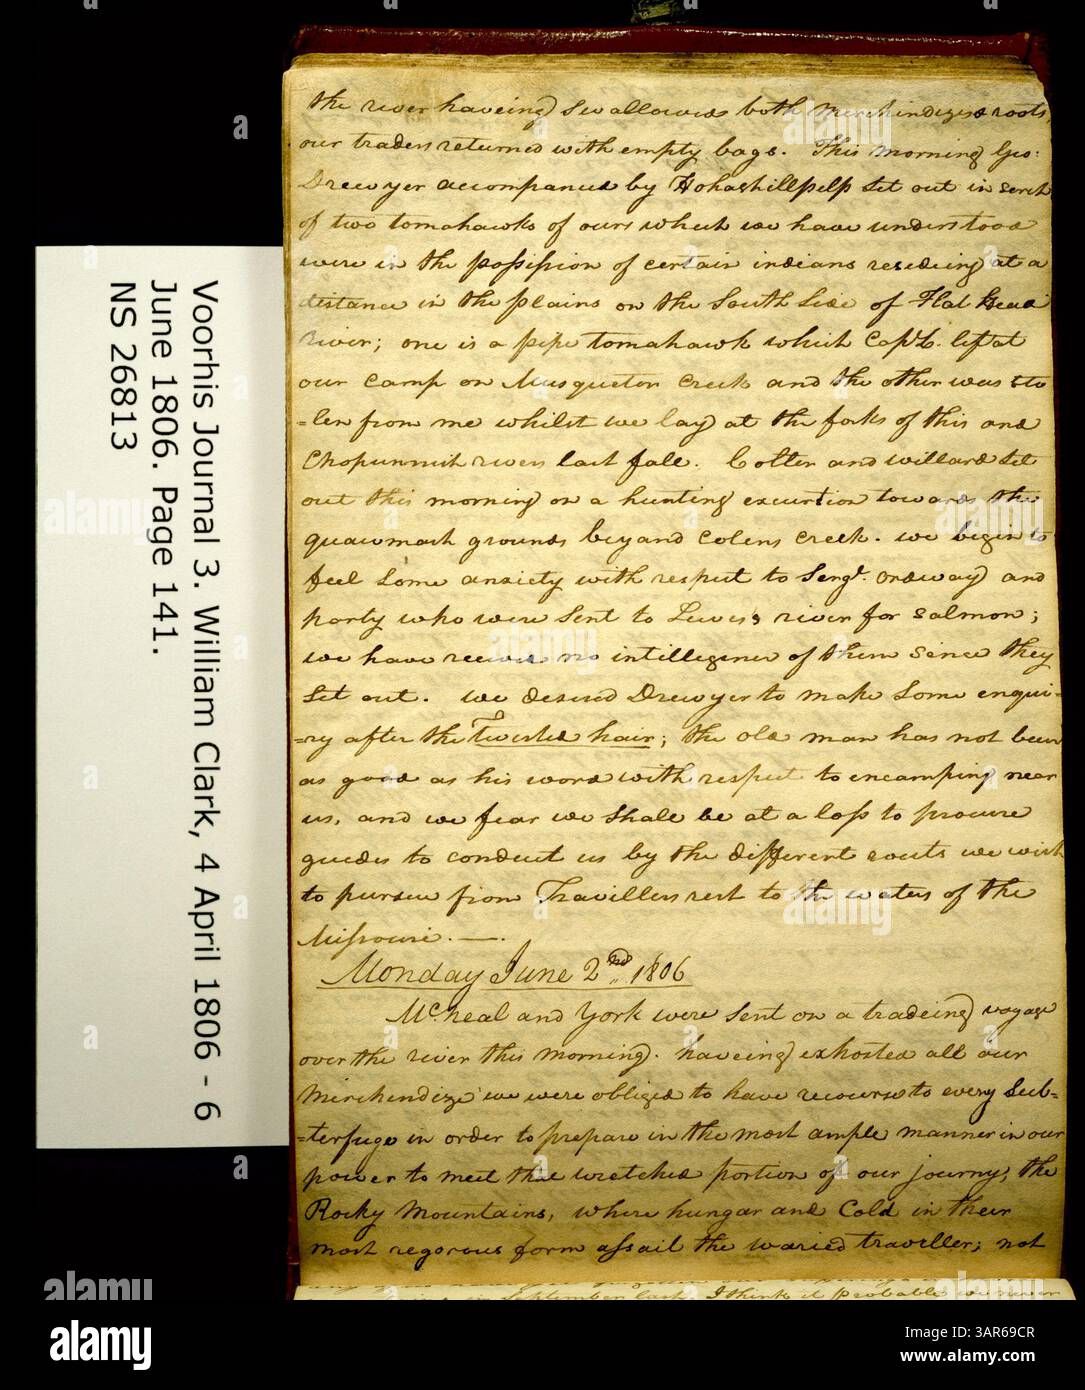 the river haveing swallowed both Merchindize & roots,
our traders returned with empty bags. This morning Geo:
Drewyer accompanied by Hohashillpilp set out in serch
of two tomahawks of ours which we have understood
were in the possission of certain indians resideing at a
distance in the plains on the South Side of Flat Head
river; one is a pipe tomahawk which Capt L. left at
our camp on Musquetor Creek and the other was sto
=len from me whilst we lay at the forks of this and
Chopunnish rivers last fall. Colter and willard set
out this morning on a hunting excurtion towards the
quawmash grounds beyand Colens Creek. we begin to
feel Some anxiety with respect to Sergt. ordway and
party who were Sent to Lewis's river for salmon;
we have receved no intilligence of them since they
set out. we desired Drewyer to make Some enqui=
=ry after the Twisted hair; the old man has not been
as good as his word with respect to encamping near
us, and we fear we Shall be at a loss to procure
guides to conduct us by the different routs we wish
to pursue from Travillers rest to the waters of the
Missouri. —.
Monday June 2nd. 1806
McNeal and York were Sent on a tradeing voyage
over the river this morning. haveing exhosted all our
Merchendize we were obliged to have recourse to every Sub=
=terfuge in order to prepare in the most ample manner in our
power to meet that wretched portion of our journy, the
Rocky Mountains, where hungar and Cold in their
most regorous form assail the waried traveller; not
September last, I think it probable we never
Voorhis Journal 3. William Clark, 4 April 1806 - 6
June 1806. Page 141.
NS 26813
alamy
a
alamy
Image ID: 3AR69CR
www.alamy.com